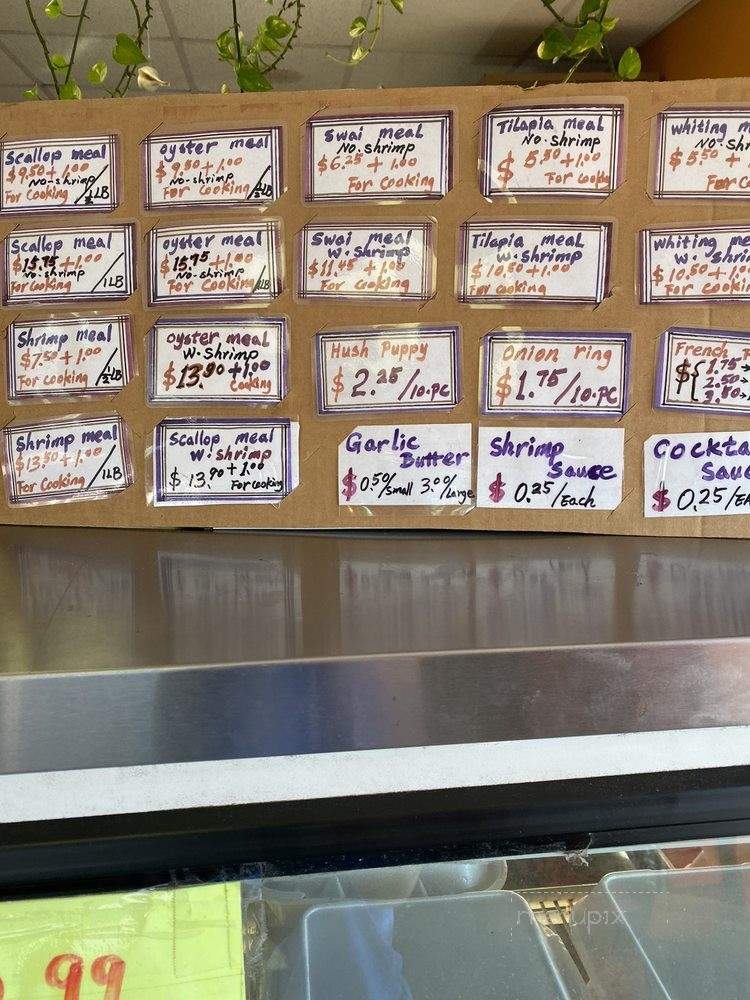 Scallop meal
$9.50 + 1.00
No-shrimp
For Cooking / ½ LB
oyster meal
$9.50 + 1.00
No-shrimp
For Cooking / ½ LB
Swai meal
No-shrimp
$6.25 + 1.00
For Cooking
Tilapia meal
No-shrimp
$5.50 + 1.00
For Cooking
whiting m
No-shr
$5.50 +
For C
Scallop meal
$15.75 + 1.00
No-shrimp
For Cooking / 1LB
oyster meal
$15.75 + 1.00
No-shrimp
For Cooking / 1LB
Swai meal
w. shrimp
$11.45 + 1.00
For Cooking
Tilapia meal
w. shrimp
$10.50 + 1.00
For Cooking
whiting me
w. shri
$10.50 + 1.0
For Cookin
Shrimp meal
$7.50 + 1.00
For Cooking / ½ LB
oyster meal
w. shrimp
$13.90 + 1.00
Cooking
Hush Puppy
$2.25/10.PC
Onion ring
$1.75/10.PC
French
$ { 1.75
2.50
3.80
Shrimp meal
$13.50 + 1.00
For Cooking / 1LB
Scallop meal
w. shrimp
$13.90 + 1.00
For cooking
Garlic
Butter
$0.50/small 3.00/Large
Shrimp
Sauce
$0.25/Each
Cockta
Sauc
$0.25/EA
99
menupix